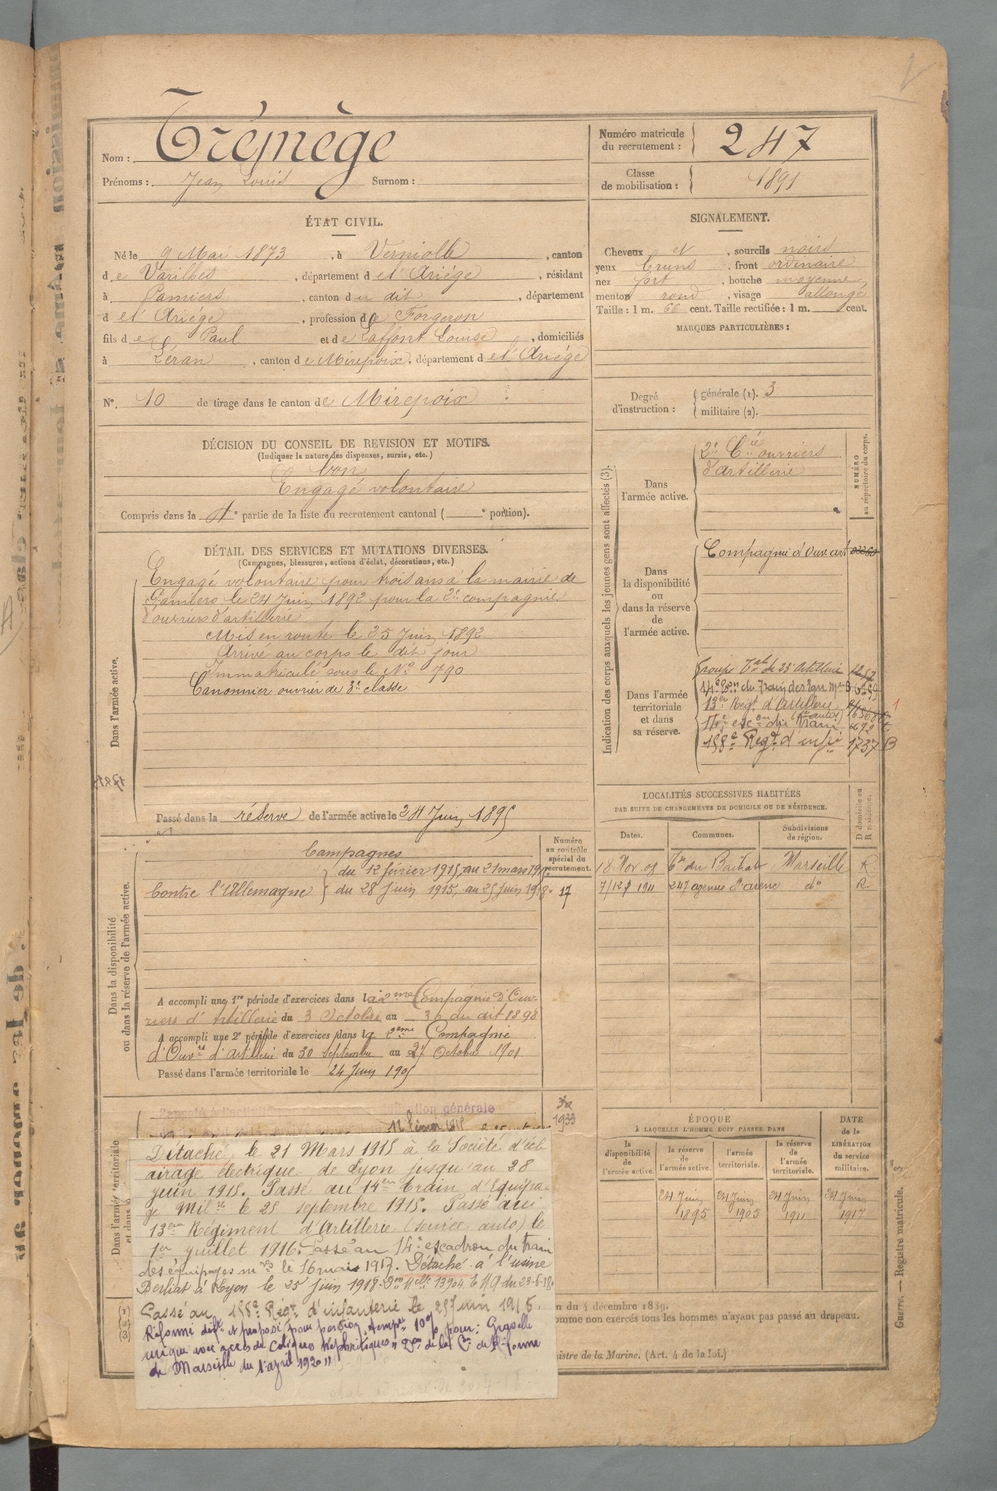 Nom : Trémège
Prénoms : Jean Louis Surnom :
Numéro matricule du recrutement : 247
Classe de mobilisation : 1891
ÉTAT CIVIL.
Né le 9 Mai 1873, à Verniolle, canton
de Varilhes, département de l'Ariège, résidant
à Pamiers, canton du dit, département
de l'Ariège, profession de Forgeron
fils de Paul et de Laffont Louise, domiciliés
à Léran, canton de Mirepoix, département de l'Ariège
N° 10 de tirage dans le canton de Mirepoix
SIGNALEMENT.
Cheveux et, sourcils noirs
yeux bruns, front ordinaire
nez fort, bouche moyenne
menton rond, visage allongé
Taille : 1 m. 66 cent. Taille rectifiée : 1 m. cent.
MARQUES PARTICULIÈRES :
Degré d'instruction : générale (1). 3
militaire (2).
DÉCISION DU CONSEIL DE REVISION ET MOTIFS.
(Indiquer la nature des dispenses, sursis, etc.)
Bon
Engagé volontaire
Compris dans la partie de la liste du recrutement cantonal ( portion).
DÉTAIL DES SERVICES ET MUTATIONS DIVERSES.
(Campagnes, blessures, actions d'éclat, décorations, etc.)
Dans l'armée active.
Engagé volontaire pour trois ans à la mairie de
Pamiers le 24 Juin 1892 pour la 2e compagnie
d'ouvriers d'artillerie
Mis en route le 25 Juin 1892
Arrivé au corps le dit jour
Immatriculé sous le N° 790
Canonnier ouvrier de 3e classe
Passé dans la réserve de l'armée active le 24 Juin 1895
Indication des corps auxquels les jeunes gens sont affectés (3).
NUMÉRO au répertoire du corps.
Dans l'armée active.
2e Cie ouvriers
d'artillerie
Dans la disponibilité ou dans la réserve de l'armée active.
Compagnie d'Ouv. art
Dans l'armée territoriale et dans sa réserve.
Groupe de 25 Artillerie
14e Eon du Train des Equ. Mres
13e Régt d'Artillerie
14e escon du Train
158e Régt d'infie 1737 B
LOCALITÉS SUCCESSIVES HABITÉES
PAR SUITE DE CHANGEMENTS DE DOMICILE OU DE RÉSIDENCE.
Dates. Communes. Subdivisions de région. D domicile ou R résidence.
18 Nov 09 Marseille R
247 avenue do R
Dans la disponibilité ou dans la réserve de l'armée active.
Numéro au contrôle spécial du recrutement.
Campagnes
Contre l'Allemagne
du 12 février 1915, au 21 mars 19
du 28 Juin 1915, au 25 Juin 1918. 17
A accompli une 1re période d'exercices dans la 2ème Compagnie d'Ouvriers
d'Artillerie du 3 Octobre au 30 du dit 1898
A accompli une 2e période d'exercices dans la Compagnie
d'Ouvrs d'artillerie du 30 Septembre au 27 Octobre 1901
Passé dans l'armée territoriale le 24 Juin 1905
Dans l'armée territoriale
générale
1933
Détaché le 21 Mars 1915 à la Société d'écl
airage électrique de Lyon jusqu'au 28
juin 1915. Passé au 14em Train d'Equipa
ge Milre le 25 septembre 1915. Passé au
13em Régiment d'Artillerie (service auto) le
1er juillet 1916. Passé au 14e escadron du train
des équipages mres le 16 mars 1917. Détaché à l'usine
Berliet à Lyon le 25 Juin 1918
Passé au 158e Régt d'infanterie le 25 Juin 1918.
Réformé et proposé pour pension 10% pour :
coliques néphrétiques de la Con de Réforme
de Marseille du 1er avril 1920
ÉPOQUE
À LAQUELLE L'HOMME DOIT PASSER DANS
la disponibilité de l'armée active. la réserve de l'armée active. l'armée territoriale. la réserve de l'armée territoriale. DATE de la LIBÉRATION du service militaire.
24 Juin 1895 24 Juin 1905 24 Juin 1911 24 Juin 1917
n du 4 décembre 1889.
omme non exercés tous les hommes n'ayant pas passé au drapeau.
nistre de la Marine. (Art. 4 de la loi.)
Guerre. — Registre matricule.